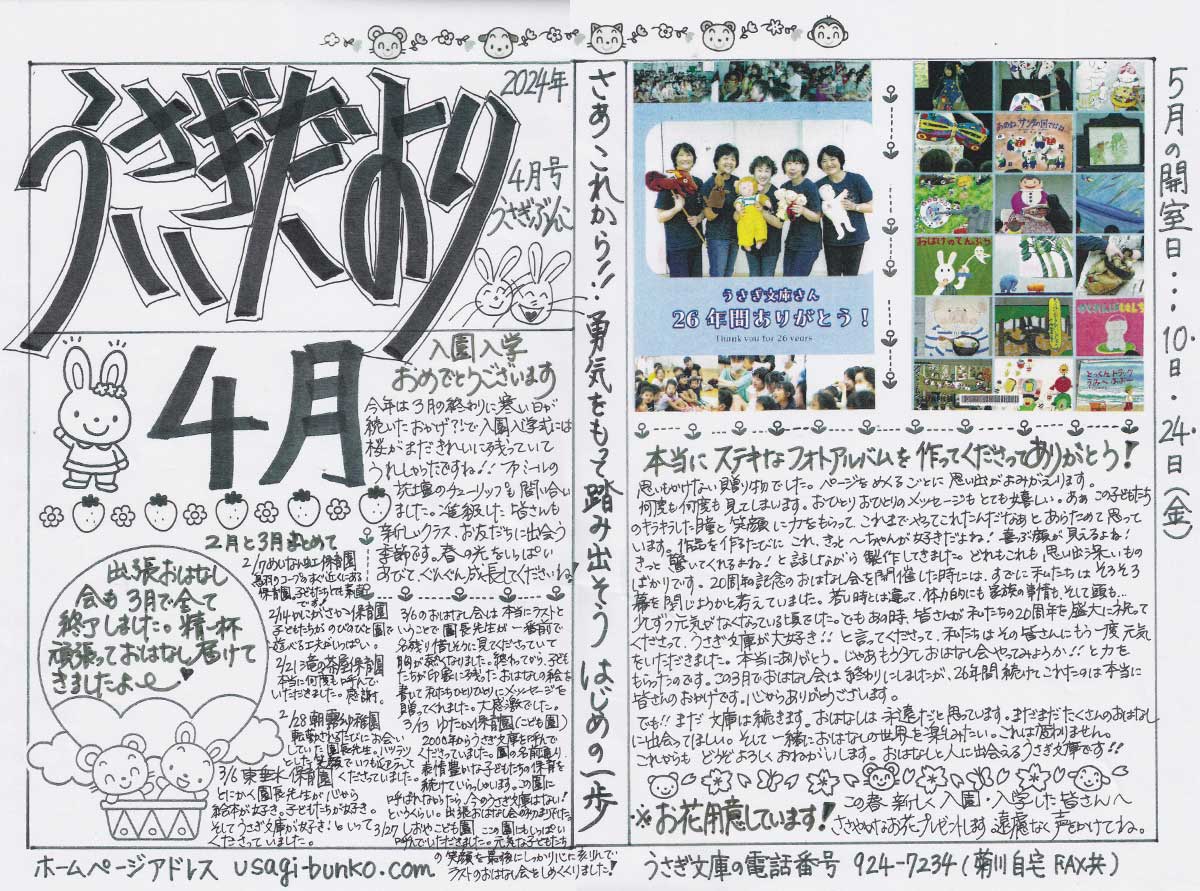 うさぎだより
2024年
4月号
うさぎぶんこ
4月
入園入学
おめでとうございます
今年は3月の終わりに寒い日が
続いたおかげ?!で入園入学式には
桜がまだきれいに残っていて
うれしかったですね!! ファミールの
花壇のチューリップも間い合い
ました。進級した皆さんも
新しいクラス、お友だちに出会う
季節です。春の光をいっぱい
あびて、ぐんぐん成長してくださいね
2月と3月まとめて
出張おはなし
会も3月で全て
終了しました。精一杯
頑張っておはなし届けて
きましたよ
2/7めいなん虹保育園
保育園。子どもたちも素敵
です
2/14かしがさか保育園
子どもたちがのびのびと園で
遊べる工夫がいっぱい。
2/21滝の茶屋保育園
本当に何度も呼んで
いただきました。感謝。
2/28朝霧幼稚園
転勤されるたびにお会い
していた園長先生。ハツラツ
とした笑顔でいつもリードして
くださっていました。
3/6東垂水保育園
とにかく園長先生が心から
絵本が好き。子どもたちが好き。
そしてうさぎ文庫が好き!といって
くださっていました。
3/6のおはなし会は本当にラストと
いうことで園長先生が一番前で
名残り惜しそうに見てくださっていて
胸が熱くなりました。終わってから、子ど
もたちが印象に残ったおはなしの絵を
書いて私たちひとりひとりにメッセージを
贈ってくれました。大感激でした。
3/13 ゆたか保育園(こども園)
2000年からうさぎ文庫を呼んで
くださっていました。園の名前通り
表情豊かな子どもたちの保育を
続けていらっしゃいます。この園に
呼ばれなかったら、今のうさぎ文庫はない!
というくらい。出張おはなし会の始まりでした
3/27しおやこども園 この園もいっぱい
呼んでいただきました。元気な子どもたち
の笑顔を最後にしっかり心に刻んで
ラストのおはなし会をしめくくりました!
ホームページアドレス usagi-bunko.com
さあこれから!!勇気をもって踏み出そう はじめの一歩
うさぎ文庫さん
26年間ありがとう!
Thank you for 26 years
あのね、サンタの国ではね
おばけのてんぷら
5月の開室日…10日・24日(金)
本当にステキなフォトアルバムを作ってくださってありがとう!
思いもかけない贈り物でした。ページをめくるごとに思い出がよみがえります。
何度も何度も見てしまいます。おひとりおひとりのメッセージもとても嬉しい。ああこの子どもたち
のキラキラした瞳と笑顔に力をもらって、これまでやってこれたんだなぁとあらためて思って
います。作品を作るたびにこれ、きっと〜ちゃんが好きだよね!喜ぶ顔が見えるよね!
きっと驚いてくれるよね!と話しながら製作してきました。どれもこれも思い出深いもの
ばかりです。20周年記念のおはなし会を開催した時には、すでに私たちはそろそろ
幕を閉じようかと考えていました。若い時とは違って、体力的にも家族の事情も、そして頭も…
少しずつ元気がなくなっている頃でした。でもあの時、皆さんが私たちの20周年を盛大に祝って
くださって、うさぎ文庫が大好き!!と言ってくださって、私たちはその皆さんにもう一度元気
をいただきました。本当にありがとう。じゃあもう少しおはなし会やってみようか!!と力を
もらったのです。この3月でおはなし会は終わりにしましたが、26年間続けてこれたのは本当に
皆さんのおかげです。心からありがとうございます。
でも!!まだ文庫は続きます。おはなしは永遠だと思っています。まだまだたくさんのおはなし
に出会ってほしい。そして一緒におはなしの世界を楽しみたい。これは変わりません。
これからもどうぞよろしくおねがいします。おはなしと人に出会えるうさぎ文庫です!!
※お花用意しています!
この春、新しく入園・入学した皆さんへ
ささやかなお花プレゼントします。遠慮なく声をかけてね。
うさぎ文庫の電話番号 924-7234(菊川自宅 FAX共)